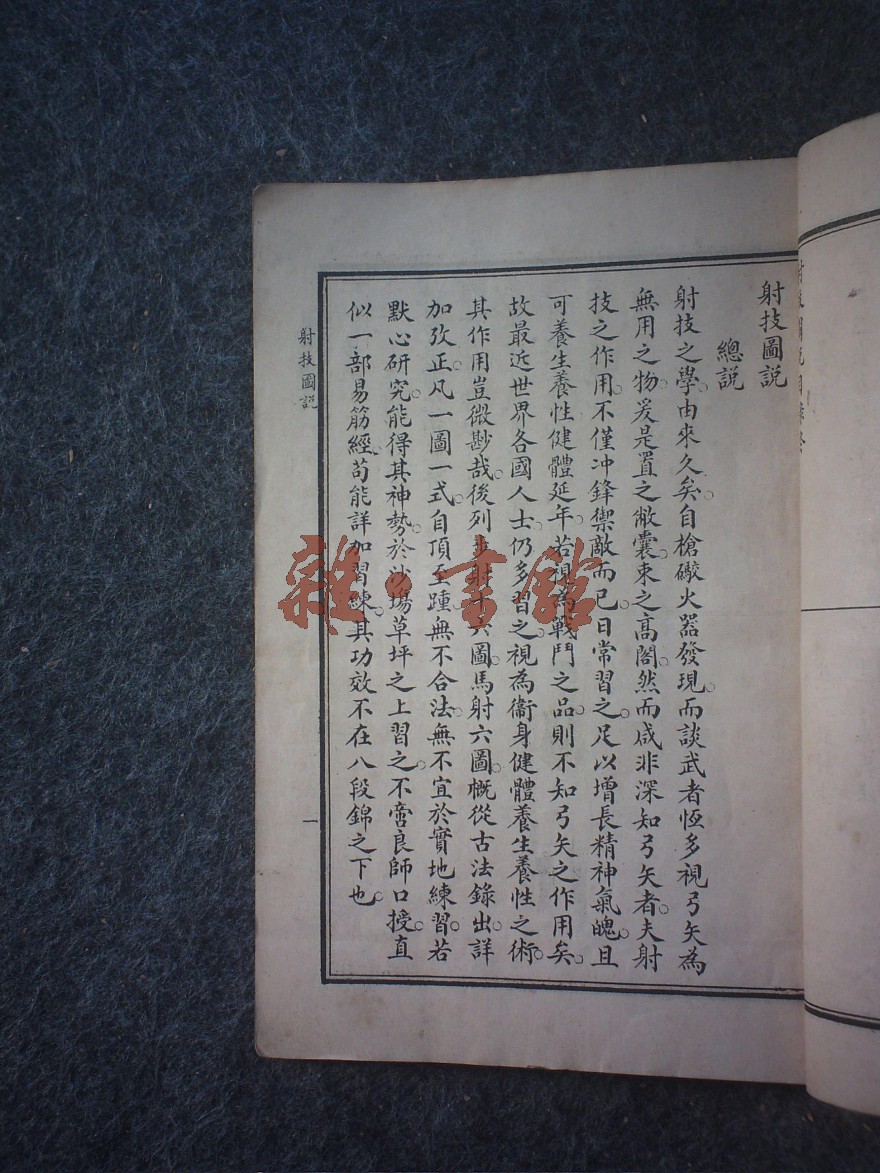 射技圖説
總説
射技之學。由來久矣。自槍礮火器發現。而談武者恆多視弓矢為
無用之物。爰是置之敝囊。束之高閣。然而咸非深知弓矢者。夫射
技之作用。不僅冲鋒禦敵而已。日常習之。足以增長精神氣魄。且
可養生養性。健體延年。若視為戰鬥之品。則不知弓矢之作用矣。
故最近世界各國人士。仍多習之。視為衞身健體。養生養性之術。
其作用豈微尠哉。後列步射十六圖。馬射六圖。概從古法錄出。詳
加攷正。凡一圖一式。自頂至踵。無不合法。無不宜於實地練習。若
默心研究。能得其神勢。於沙場草坪之上習之。不啻良師口授。直
似一部易筋經。苟能詳加習練。其功效不在八段錦之下也。
射技圖説
一
雜·書館